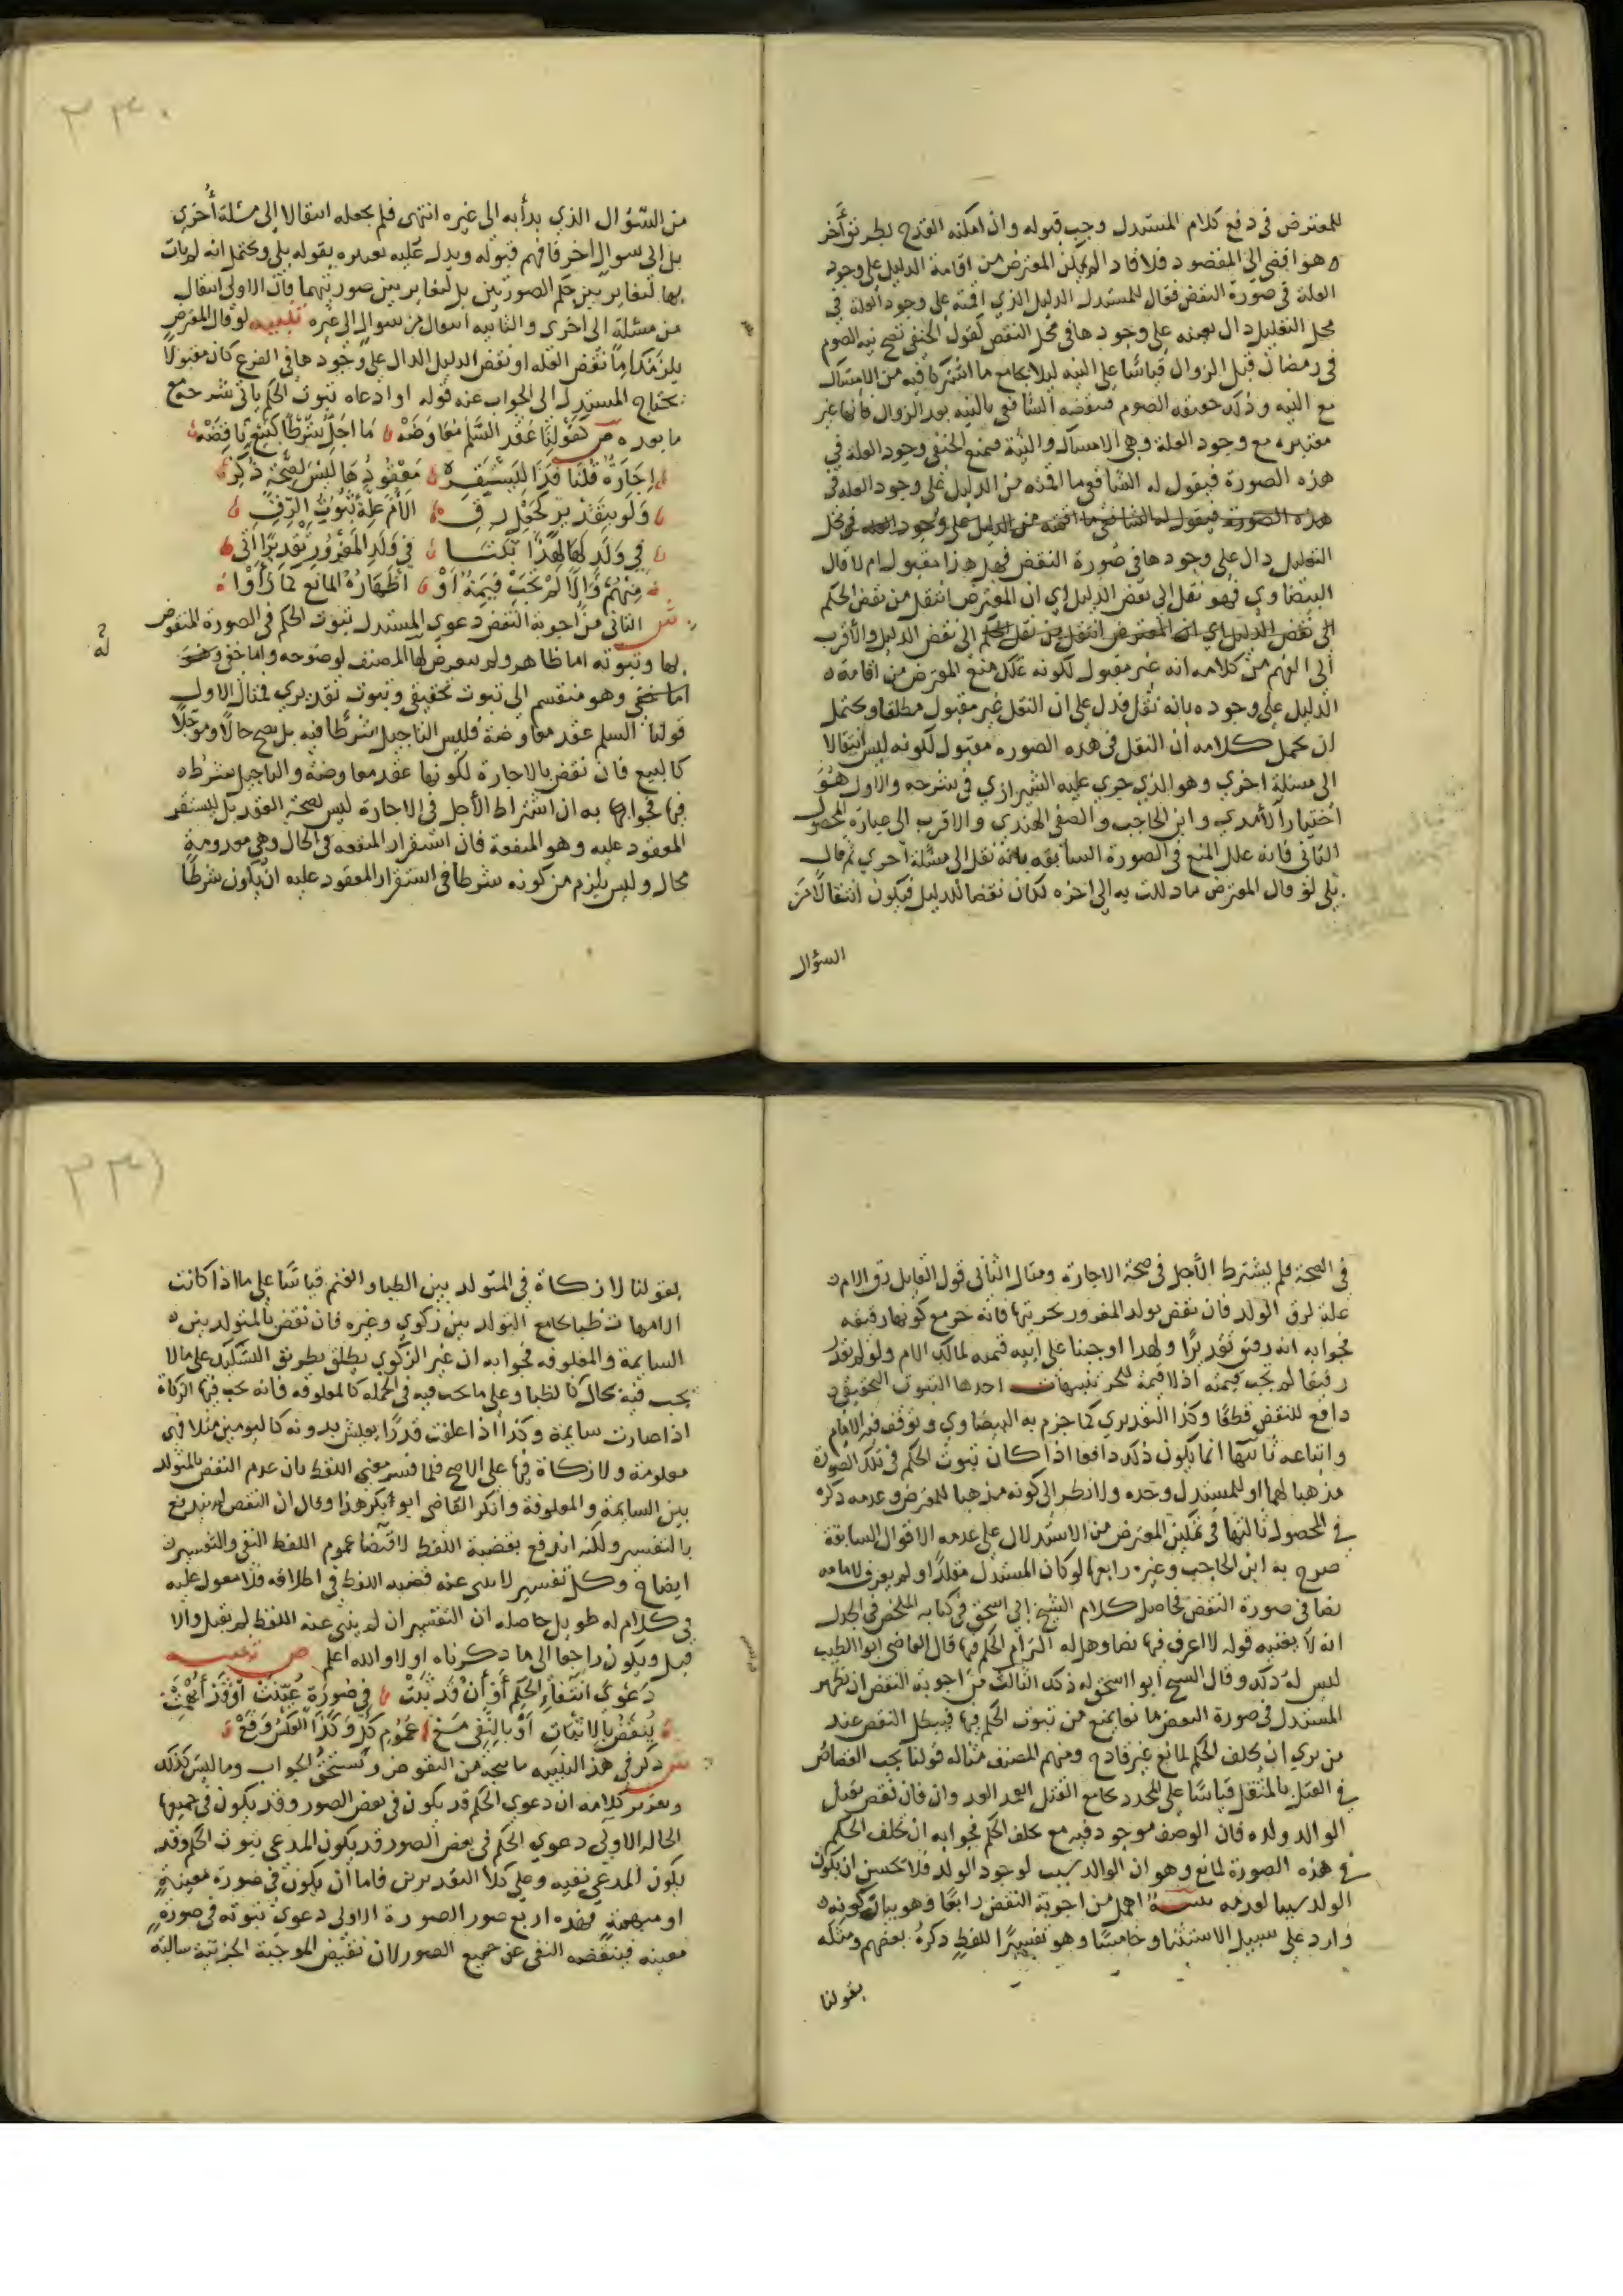 للمعترض في دفع كلام المستدل وجب قبوله وان امكنه القدح بطريق آخر
وهو افضى الى المقصود فلا فاذا لم يمكن المعترض من اقامة الدليل على وجود
العلة في صورة النقض فقال للمستدل الدليل الذي اقمته على وجود العلة في
محل التعليل دال بعينه على وجودها في محل النقض كقول الحنفي تصح نية الصوم
في رمضان قبل الزوال قياسا على النية ليلا بجامع ما اشتركا فيه من الامساك
مع النية وذلك حقيقة الصوم فنقضه الشافعي بالنية بعد الزوال فانها غير
معتبره مع وجود العلة وهي الامساك والنية فمنع الحنفي وجود العلة في
هذه الصورة فيقول له الشافعي ما اقمته من الدليل على وجود العلة في
هذه الصورة فيقول له الشافعي ما اقمته من الدليل على وجود العلة في محل
التعليل دال على وجودها في صورة النقض فهل هذا مقبول ام لا قال
البيضاوي فهو نقل الى نقض الدليل اي ان المعترض انتقل من نقض الحكم
الى نقض الدليل اي ان المعترض انتقل من نقل الحكم الى نقض الدليل والأقرب
الى الفهم من كلامه انه غير مقبول لكونه علل منع المعترض من اقامة
الدليل على وجوده بانه نقل فدل على ان النقل غير مقبول مطلقا ويحتمل
ان يحمل كلامه ان النقل في هذه الصوره مقبول لكونه ليس انتقالا
الى مسئلة اخرى وهو الذي جرى عليه الشيرازي في شرحه والاول هو
اختيار الآمدي وابن الحاجب والصفي الهندي والاقرب الى عبارة المحصول
الثاني فانه علل المنع في الصورة السابقه بانه نقل الى مسئلة اخري ثم قال
بلى لو قال المعترض ما دللت به الى اخره لكان نقضا للدليل فيكون انتقالا من
السؤال
٣٣٠
من السؤال الذي بدأ به الى غيره انتهى فلم يجعله انتقالا الى مسئلة أخرى
بل الى سوال اخر فافهم قبوله ويدل عليه تصديره بقوله بلى ويحتمل انه لم يات
بها لتغاير بين حكم الصورتين بل لتغاير بين صورتيهما فان الاولى انتقال
من مسئلة الى اخرى والثانيه انتقال من سوال الى غيره تنبيه لو قال المعترض
يلزمك اما نقض العله او نقض الدليل الدال على وجودها في الفرع كان مقبولا
يحتاج المستدل الى الجواب عنه قوله او ادعاه ثبوت الحكم ياتي شرحه مع
ما بعده ص كقولنا عقد السلم معاوضة ما اجل شرطا كبيع نافضه
اجارة قلنا فذا ليستقر معقودها ليس لصحة ذكر
ولو بتقدير كجعل رق الام علة ثبوت الرق
في ولد لها لهذا نكتا في ولد المغرور تقديرا اتى
منهم والا لم تجب قيمة او اظهاره المانع لما رأوا
ش الثاني من اجوبة النقض دعوى المستدل ثبوت الحكم في الصورة المنقوض
بها وثبوته اما ظاهر ولم يتعرض لها المصنف لوضوحه واما خفي
اما خفي وهو منقسم الى ثبوت تحقيقي وثبوت تقديري فمثال الاول
قولنا السلم عقد معاوضة فليس التاجيل شرطا فيه بل يصح حالا ومؤجلا
كالبيع فان نقض بالاجارة لكونها عقد معاوضة والتاجيل شرط
فيها فجوابه ان اشتراط الأجل في الاجارة ليس لصحة العقد بل ليستقر
المعقود عليه وهو المنفعة فان استقرار المنفعه في الحال وهي معدومة
محال وليس يلزم من كونه شرطا في استقرار المعقود عليه ان يكون شرطا
في الصحة فلم يشترط الأجل في صحة الاجارة ومثال الثاني قول القايل رق الام
علة لرق الولد فان نقض بولد المغرور بحريتها فانه حر مع كونها رقيقه
فجوابه انه رقيق تقديرا ولهذا اوجبنا على ابيه قيمته لمالك الام ولو لم نقدر
رقيقا لم تجب قيمته اذ لا قيمة للحر تنبيهات احدها الثبوت التحقيقي
دافع للنقض قطعا وكذا التقديري كما جزم به البيضاوي وتوقف فيه الامام
واتباعه ثانيها انما يكون ذلك دافعا اذا كان ثبوت الحكم في تلك الصورة
مذهبا لهما او للمستدل وحده ولا نظر الى كونه مذهبا للمعترض وعدمه ذكره
في المحصول ثالثها في تمكين المعترض من الاستدلال على عدمه الاقوال السابقة
صرح به ابن الحاجب وغيره رابعها لو كان المستدل مقلدا ولم يعرف لامامه
نصا في صورة النقض فحاصل كلام الشيخ ابي اسحق في كتابه الملخص في الجدل
انه لا يغنيه قوله لا اعرف فيها نصا وهل له التزام الحكم فيها قال القاضي ابو الطيب
ليس له ذلك وقال الشيخ ابو اسحق له ذلك الثالث من اجوبة النقض ان يظهر
المستدل في صورة النقض مانعا يمنع من ثبوت الحكم فيها فيبطل النقض عند
من يرى ان تخلف الحكم لمانع غير قادح ومنهم المصنف مثاله قولنا يجب القصاص
في القتل بالمثقل قياسا على المحدد بجامع القتل العمد العدوان فان نقض بقتل
الوالد ولده فان الوصف موجود فيه مع تخلف الحكم فجوابه ان تخلف الحكم
في هذه الصورة لمانع وهو ان الوالد سبب لوجود الولد فلا يحسن ان يكون
الولد سببا لعدمه تنبيه اهمل من اجوبة النقض رابعا وهو بيان كونه
وارد على سبيل الاستثنا وخامسا وهو تفسيرا للفظ ذكره بعضهم ومثله
بقولنا
٣٣١
بقولنا لا زكاة في المتولد بين الظبا والغنم قياسا على ما اذا كانت
الامهات ظبا بجامع التولد بين زكوي وغيره فان نقض بالمتولد بين
السايمة والمعلوفه فجوابه ان غير الزكوي يطلق بطريق التشكيك على ما لا
يجب فيه بحال كالظبا وعلى ما تجب فيه في الجمله كالمعلوفه فانه تجب فيها الزكاة
اذا صارت سايمة وكذا اذا علفت قدرا يعيش بدونه كاليومين مثلا فهي
معلومة ولا زكاة فيها على الاصح فلما فسر معنى اللفظ بان عدم النقض بالمتولد
بين السايمة والمعلوفة وانكر القاضي ابو بكر هذا وقال ان النقض لم يندفع
بالتفسير ولكنه اندفع بقضية اللفظ لاقتضا عموم اللفظ النفي والتفسير
ايضاح وكل تفسير لا ينبى عنه قضيه اللفظ في اطلاقه فلا معول عليه
في كلام له طويل حاصله ان التفسير ان لم ينبي عنه اللفظ لم يقبل والا
قبل ويكون راجعا الى ما ذكرناه اولا والله اعلم ص تنبيه
دعوى انتفاء الحكم أو أن قد ثبت في صورة عينت او قد أبهمت
ينقض بالاثبات او بالنفي مع عموم كل وكذا العكس وقع
ش ذكر في هذا التنبيه ما يتجه من النقوض ويستحق الجواب وما ليس كذلك
وتقرير كلامه ان دعوى الحكم قد يكون في بعض الصور وقد يكون في جميعها
الحالة الاولى دعوى الحكم في بعض الصور قد يكون المدعى ثبوت الحكم وقد
يكون المدعي نفيه وعلى كلا التقديرين فاما ان يكون في صورة معينة
او مبهمة فهذه اربع صور الصورة الاولى دعوى ثبوته في صورة
معينه فينقضه النفي عن جميع الصور لان نقيض الموجبة الجزئية سالبة